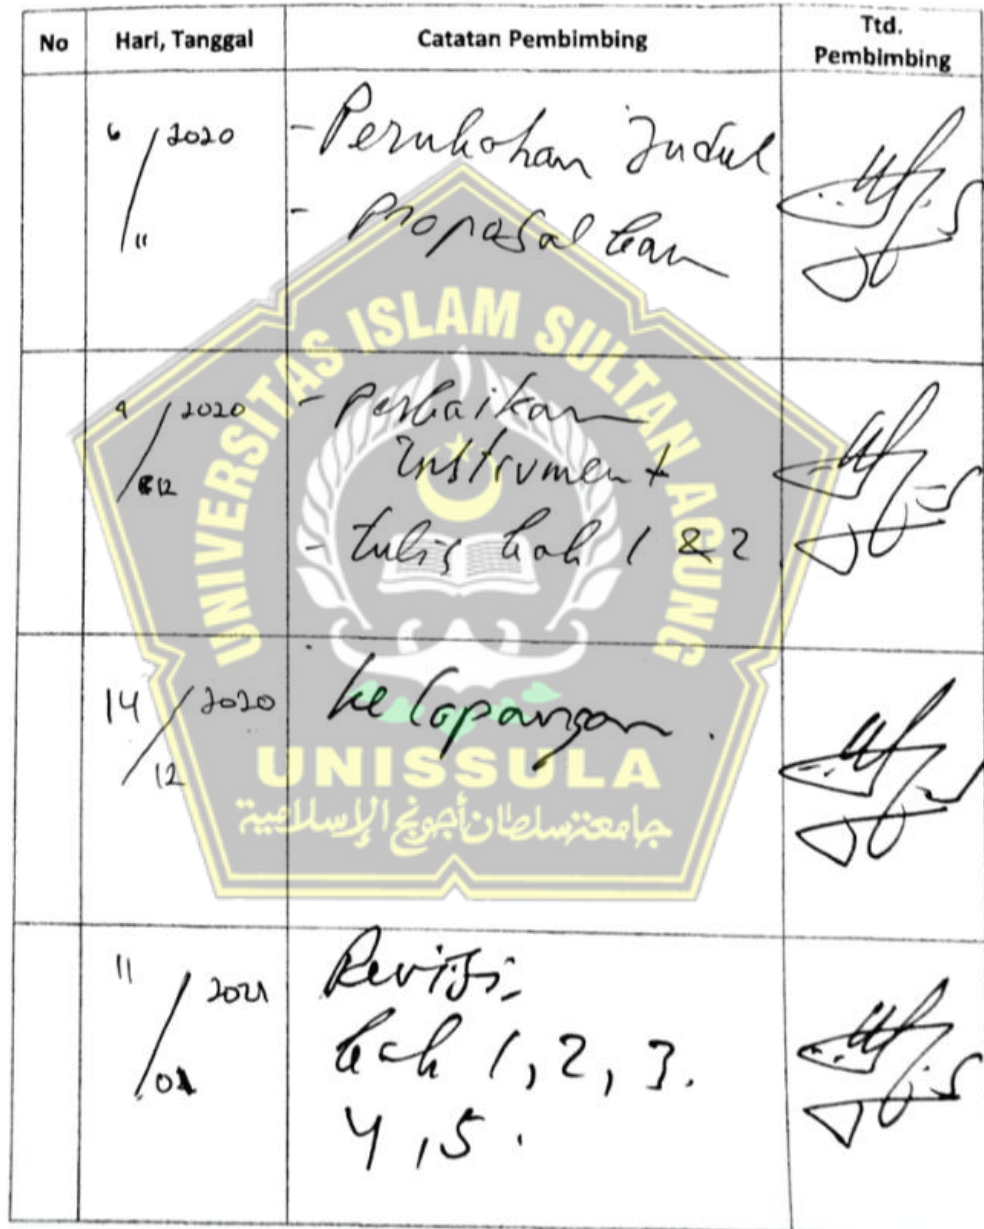 No Hari, Tanggal Catatan Pembimbing Ttd. Pembimbing
6/11 2020 - Perubahan Judul
- Proposal
4/12 2020 - Perbaikan
Instrument
- tulis bab 1 & 2
14/12 2020 ke lapangan.
11/01 2021 Revisi
bab 1, 2, 3.
4, 5.
UNIVERSITAS ISLAM SULTAN AGUNG
UNISSULA
جامعة سلطان أجونج الإسلامية